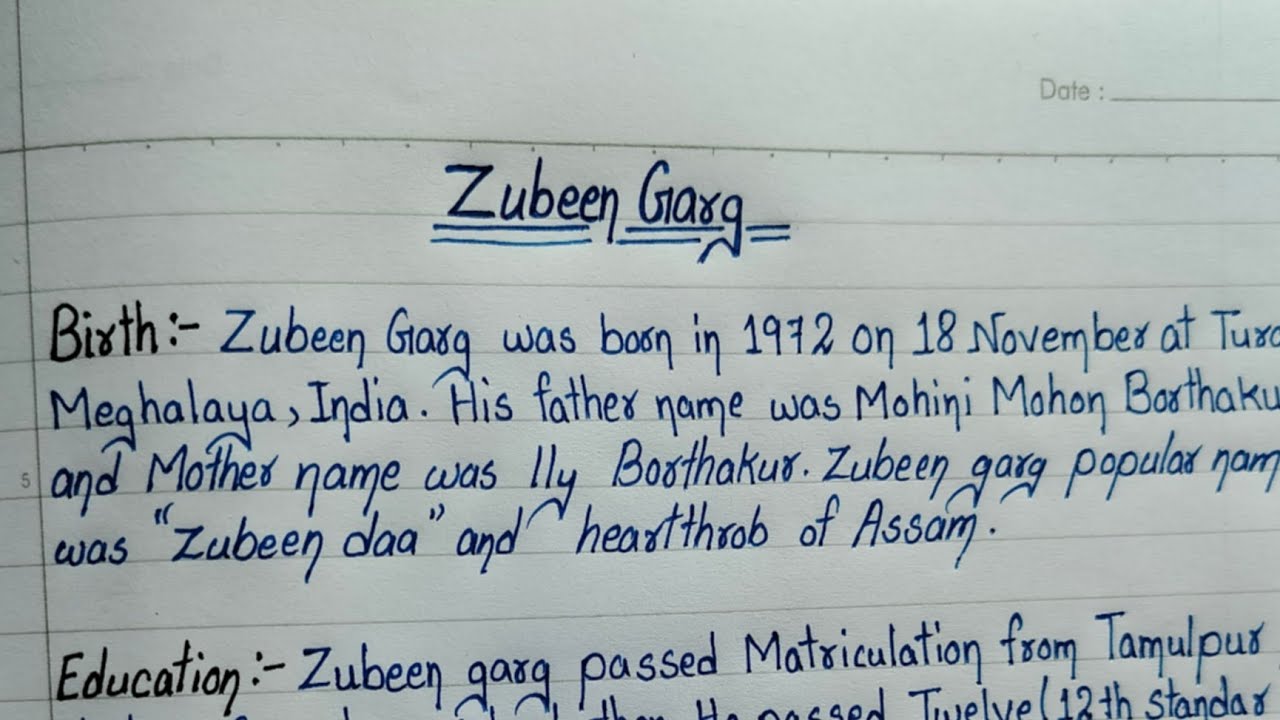 Date :
Zubeen Garg
Birth:- Zubeen Garg was born in 1972 on 18 November at Tura
Meghalaya, India. His father name was Mohini Mohon Borthaku
and Mother name was Ily Borthakur. Zubeen garg popular nam
5
was "Zubeen daa" and heartthrob of Assam.
Education:- Zubeen garg passed Matriculation from Tamulpur
then He passed Twelve (12th standar